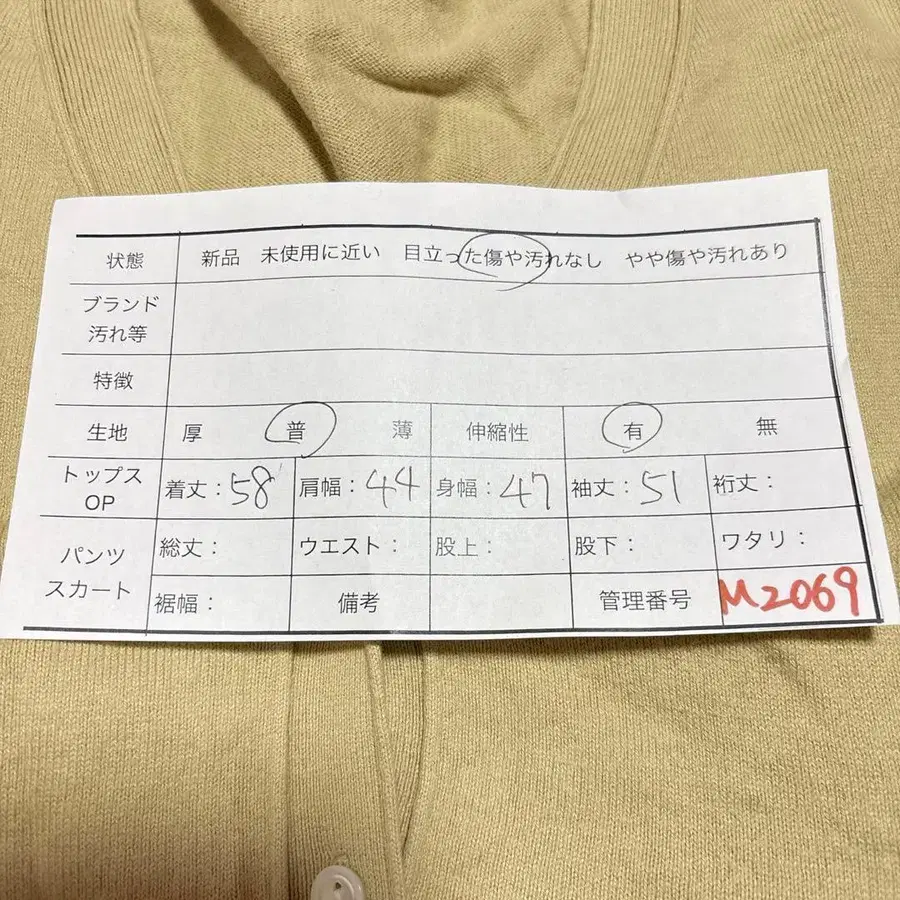 状態 新品 未使用に近い 目立った傷や汚れなし やや傷や汚れあり
ブランド
汚れ等
特徴
生地 厚 普 薄 伸縮性 有 無
トップス
OP
着丈：58 肩幅：44 身幅：47 袖丈：51 裄丈：
パンツ
スカート
総丈： ウエスト： 股上： 股下： ワタリ：
裾幅： 備考 管理番号 M2069